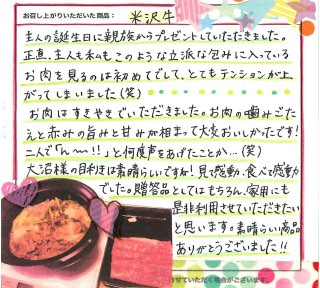 お召し上がりいただいた商品： 米沢牛
主人の誕生日に親族からプレゼントしていただきました。
正直、主人も私もこのような立派な包みに入っている
お肉を見るのは初めてでして、とてもテンションが上
がってしまいました(笑)
お肉はすきやきでいただきました。お肉の噛みごた
えと赤みの旨みと甘みが相まって大変おいしかったです!
二人で「ん〜!!」と何度声をあげたことか…(笑)
大沼様の目利きは素晴らしいですね!見て感動、食べて感動
でした。贈答品としてはもちろん、家用にも
是非利用させていただきたい
と思います。素晴らしい商品
ありがとうございました!!
させていただく場合がございます。